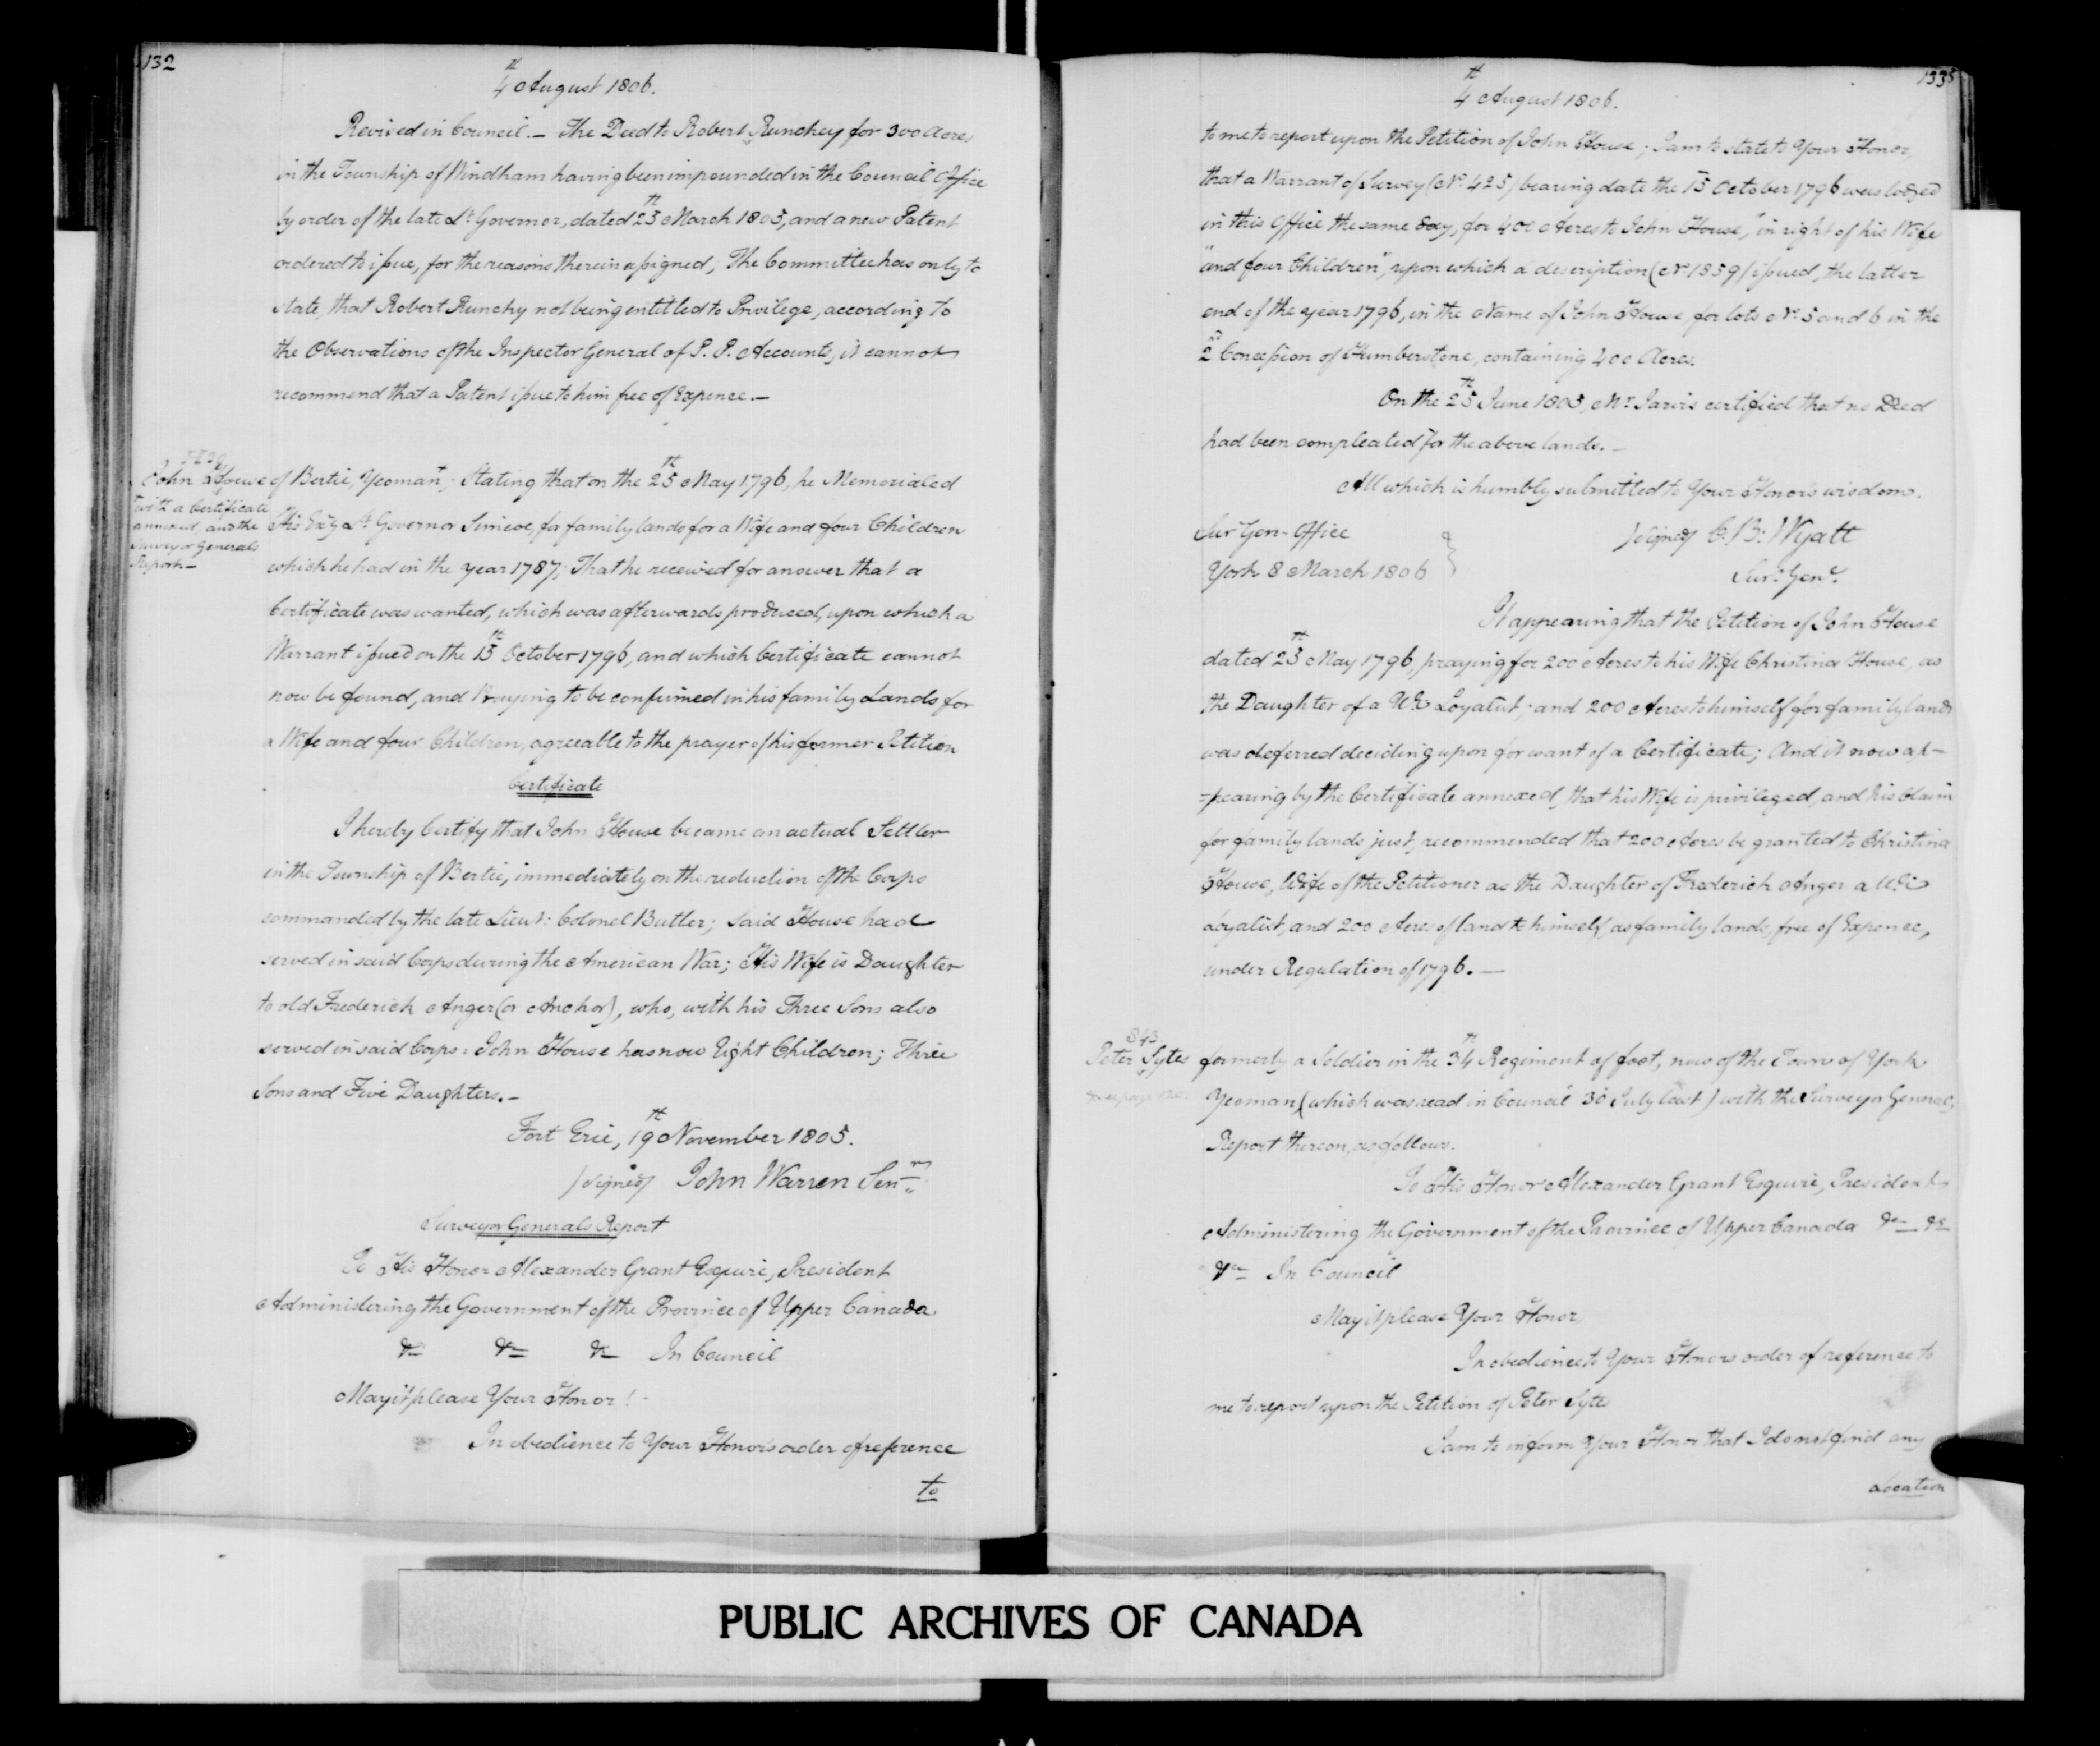 132
4th August 1806.
Revised in Council._ The Deed to Robert Runchey for 300 Acres
in the Township of Windham having been impounded in the Council Office
by order of the late Lt Governor, dated 25th March 1805, and a new Patent
ordered to issue, for the reasons therein assigned; The Committee has only to
state, that Robert Runchy not being entitled to Privilege, according to
the Observations of the Inspector General of P. P. Accounts, it cannot
recommend that a Patent issue to him free of Expence._
John House of Bertie, Yeoman; Stating that on the 25th May 1796, he Memorialed
with a Certificate
annexed, and the
Surveyor Generals
Report_
His Exy Lt Governor Simcoe, for family lands for a Wife and four Children
which he had in the year 1787; That he received for answer that a
Certificate was wanted, which was afterwards produced, upon which a
Warrant issued on the 15th October 1796, and which Certificate cannot
now be found, and Praying to be confirmed in his family Lands for
a Wife and four Children, agreeable to the prayer of his former Petition
Certificate
I hereby Certify that John House became an actual Settler
in the Township of Bertie, immediately on the reduction of the Corps
commanded by the late Lieut: Colonel Butler; Said House had
served in said Corps during the American War; His Wife is Daughter
to old Frederick Anger (or Anchor), who, with his Three Sons also
served in said Corps: John House has now Eight Children; Three
Sons and Five Daughters._
Fort Erie, 19th November 1805.
/signed/ John Warren Senr
Surveyor Generals Report
To His Honor Alexander Grant Esquire, President
Administering the Government of the Province of Upper Canada
&c &c &c In Council
May it please Your Honor!
In obedience to Your Honors order of reference
to
4th August 1806.
to me to report upon the Petition of John House; I am to state to Your Honor,
that a Warrant of Survey (No. 425) bearing date the 15 October 1796 was lodged
in this Office the same day, for 400 Acres to John House, "in right of his Wife
"and four Children", upon which a description (No. 1859) issued, the latter
end of the year 1796, in the Name of John House for lots No. 5 and 6 in the
2d Concession of Humberstone, containing 400 Acres.
On the 25th June 1805, Mr. Jarvis certified that no Deed
had been compleated for the above lands._
All which is humbly submitted to Your Honors wisdom.
Surr Gen. Office
York 8 March 1806
/signed/ C. B: Wyatt
Surr. Genl.
It appearing that the Petition of John House
dated 25th May 1796, praying for 200 Acres to his Wife Christina House, as
the Daughter of a UE Loyalist; and 200 Acres to himself for family lands
was deferred deciding upon for want of a Certificate; And it now ap-
=pearing by the Certificate annexed, that his Wife is privileged, and his Claim
for family lands just, recommended that 200 Acres be granted to Christina
House, Wife of the Petitioner as the Daughter of Frederick Anger a UE
Loyalist, and 200 Acres of land to himself, as family lands, free of Expence,
under Regulation of 1796._
843
Peter Sytes formerly a Soldier in the 34th Regiment of foot, now of the Town of York
Yeoman, (which was read in Council 30 July last) with the Surveyor Generals
Report thereon, as follows.
To His Honor Alexander Grant Esquire, President
Administering the Government of the Province of Upper Canada &c &c
&c In Council
May it please Your Honor,
In obedience to Your Honors order of reference to
me to report upon the Petition of Peter Sytes
I am to inform Your Honor that I do not find any
Location
PUBLIC ARCHIVES OF CANADA